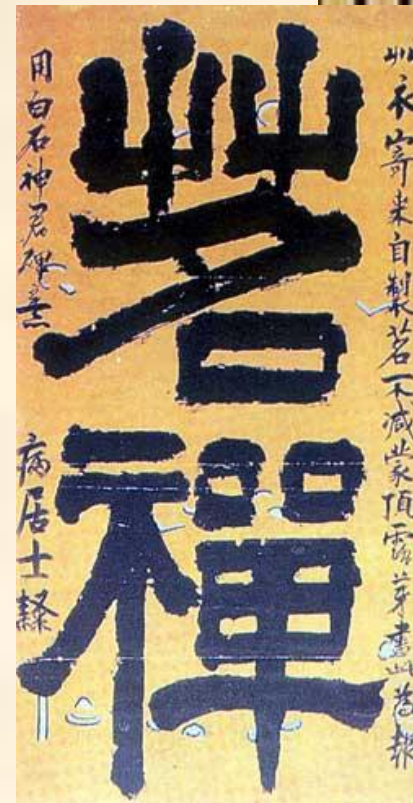 茗禪
艸衣寄來自製茗不減蒙頂露芽書此爲報
用白石神君碑意
病居士隸